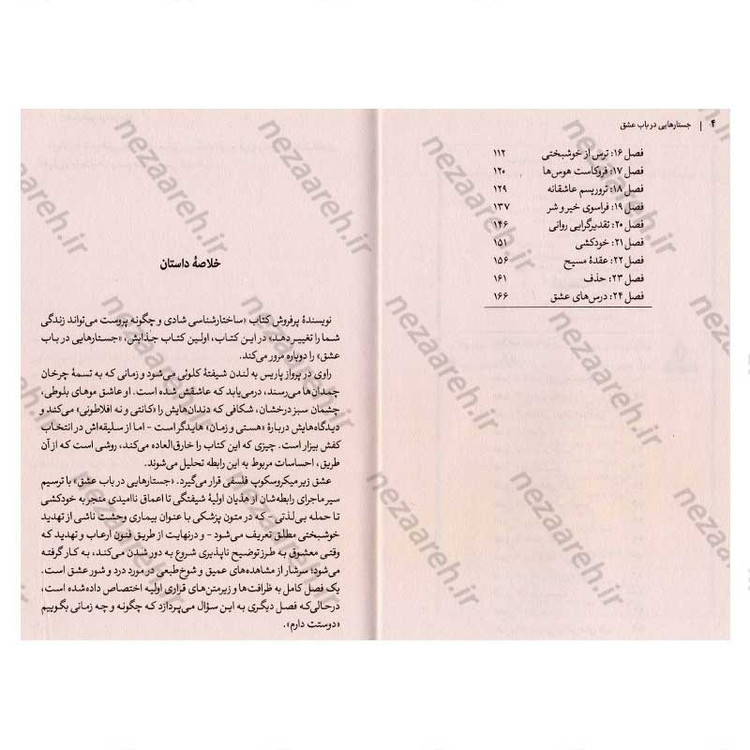 ۴ | جستارهایی در باب عشق
فصل ۱۶: ترس از خوشبختی ۱۱۲
فصل ۱۷: فروکاست هوس‌ها ۱۲۰
فصل ۱۸: تروریسم عاشقانه ۱۲۹
فصل ۱۹: فراسوی خیر و شر ۱۳۷
فصل ۲۰: تقدیرگرایی روانی ۱۴۶
فصل ۲۱: خودکشی ۱۵۱
فصل ۲۲: عقدهٔ مسیح ۱۵۶
فصل ۲۳: حذف ۱۶۱
فصل ۲۴: درس‌های عشق ۱۶۶
خلاصهٔ داستان
نویسندهٔ پرفروش کتاب «ساختارشناسی شادی و چگونه پروست می‌تواند زندگی
شما را تغییر دهد» در این کتاب، اولین کتاب جذابش، «جستارهایی در باب
عشق» را دوباره مرور می‌کند.
راوی در پرواز پاریس به لندن شیفتهٔ کلوئی می‌شود و زمانی که به تسمهٔ چرخان
چمدان‌ها می‌رسند، درمی‌یابد که عاشقش شده است. او عاشق موهای بلوطی،
چشمان سبز درخشان، شکافی که دندان‌هایش را «کانتی و نه افلاطونی» می‌کند و
دیدگاه‌هایش دربارهٔ «هستی و زمان» هایدگر است - اما از سلیقه‌اش در انتخاب
کفش بیزار است. چیزی که این کتاب را خارق‌العاده می‌کند، روشی است که از آن
طریق، احساسات مربوط به این رابطه تحلیل می‌شوند.
عشق زیر میکروسکوپ فلسفی قرار می‌گیرد. «جستارهایی در باب عشق» با ترسیم
سیر ماجرای رابطه‌شان از هذیان اولیهٔ شیفتگی تا اعماق ناامیدی منتجر به خودکشی
تا حمله بی‌لذتی - که در متون پزشکی با عنوان بیماری وحشت ناشی از تهدید
خوشبختی مطلق تعریف می‌شود - و درنهایت از طریق فنون ارعاب و تهدید که
وقتی معشوق به طرز توضیح ناپذیری شروع به دور شدن می‌کند، به کار گرفته
می‌شود؛ سرشار از مشاهده‌های عمیق و شوخ‌طبعی در مورد درد و شور عشق است.
یک فصل کامل به ظرافت‌ها و زیرمتن‌های قراری اولیه اختصاص داده‌شده است،
درحالی‌که فصل دیگری به این سؤال می‌پردازد که چگونه و چه زمانی بگوییم
«دوستت دارم».
nezaareh.ir
nezaareh.ir
nezaareh.ir
nezaareh.ir
nezaareh.ir
nezaareh.ir
nezaareh.ir
nezaareh.ir
nezaareh.ir